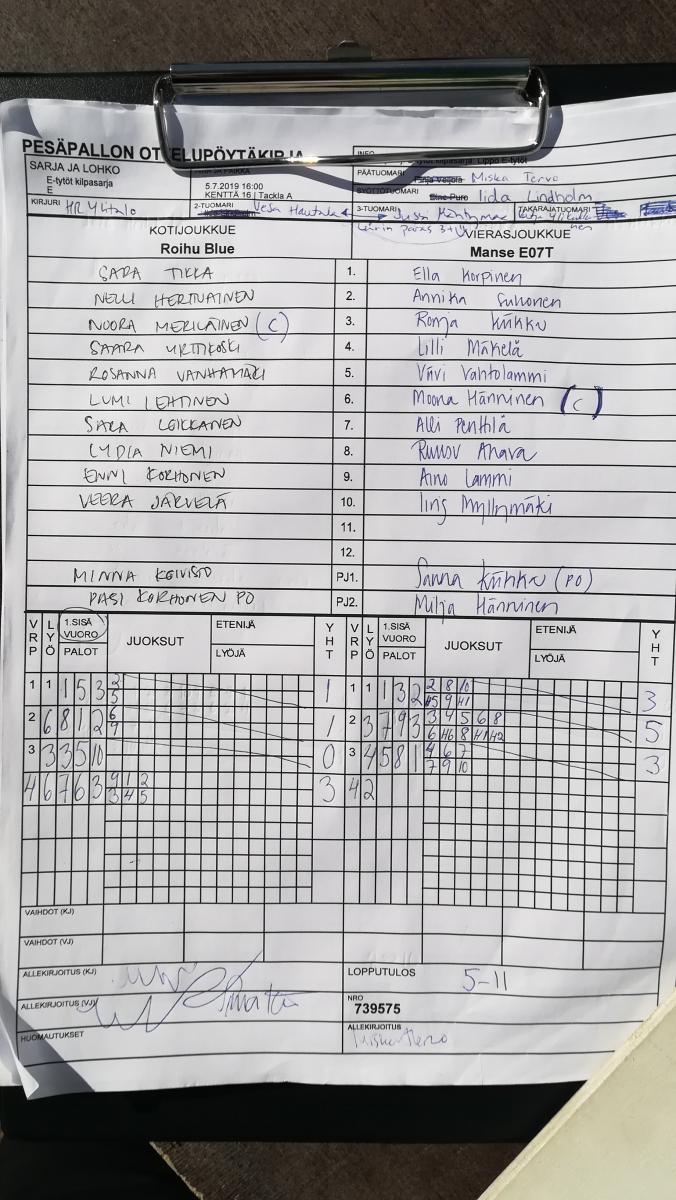 PESÄPALLON OTTELUPÖYTÄKIRJA
SARJA JA LOHKO
E-tytöt kilpasarja
E
5.7.2019 16:00
KENTTÄ 16 | Tackla A
PÄÄTUOMARI Miska Tervo
SYÖTTÖTUOMARI Iida Lindholm
KIRJURI
2-TUOMARI Vesa Hautala
3-TUOMARI Jussi
TAKARAJATUOMARI
KOTIJOUKKUE VIERASJOUKKUE
Roihu Blue Manse E07T
SARA TIKKA 1. Ella Korpinen
NELLI HERTUAINEN 2. Annika Suhonen
NOORA MERILÄINEN (C) 3. Ronja Kiikku
SAARA 4. Lilli Mäkelä
ROSANNA VANHAMÄKI 5. Viivi Vahtolammi
LUMI LEHTINEN 6. Moona Hänninen (C)
SARA LEIKKANEN 7. Alli Penttilä
LYDIA NIEMI 8. Ahava
ENNI KORHONEN 9. Aino Lammi
VEERA JÄRVELÄ 10. Myllymäki
11.
12.
MINNA KOIVISTO PJ1. Sanna Kiikku (PO)
PASI KORHONEN PO PJ2. Milja Hänninen
VRP LYÖ 1.SISÄ VUORO PALOT JUOKSUT ETENIJÄ LYÖJÄ YHT VRP LYÖ 1.SISÄ VUORO PALOT JUOKSUT ETENIJÄ LYÖJÄ YHT
1 1 1 5 3 2 1 1 1 1 3 2 2 8 10 3
5 H5 9 H1
2 6 8 1 2 6 1 2 3 7 9 3 3 4 5 6 8 5
9 6 H6 8 H1 H2
3 3 3 5 10 0 3 4 5 8 1 4 6 7 3
7 9 10
4 6 7 6 3 9 1 2 3 4 2
3 4 5
VAIHDOT (KJ)
VAIHDOT (VJ)
ALLEKIRJOITUS (KJ) LOPPUTULOS 5-11
ALLEKIRJOITUS (VJ) NRO
739575
HUOMAUTUKSET ALLEKIRJOITUS